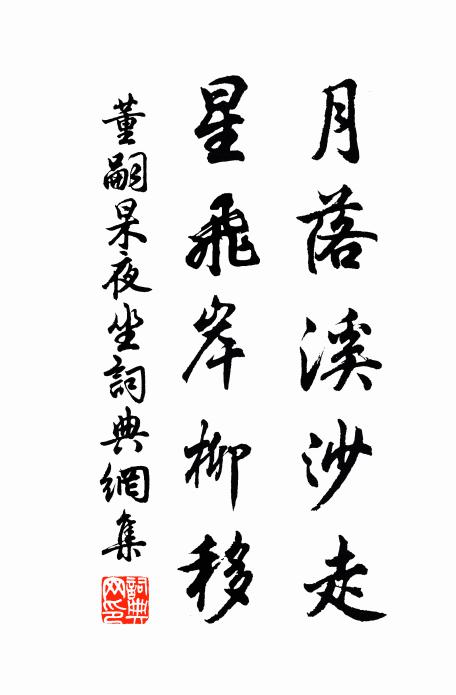 月落溪沙走
星飛岸柳移
董嗣杲夜坐詞典網集
詞典網印